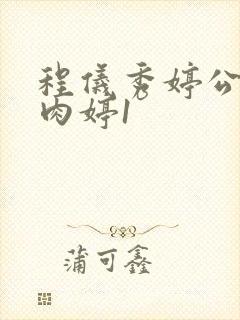 程仪秀婷公
肉婷1
蒲可鑫